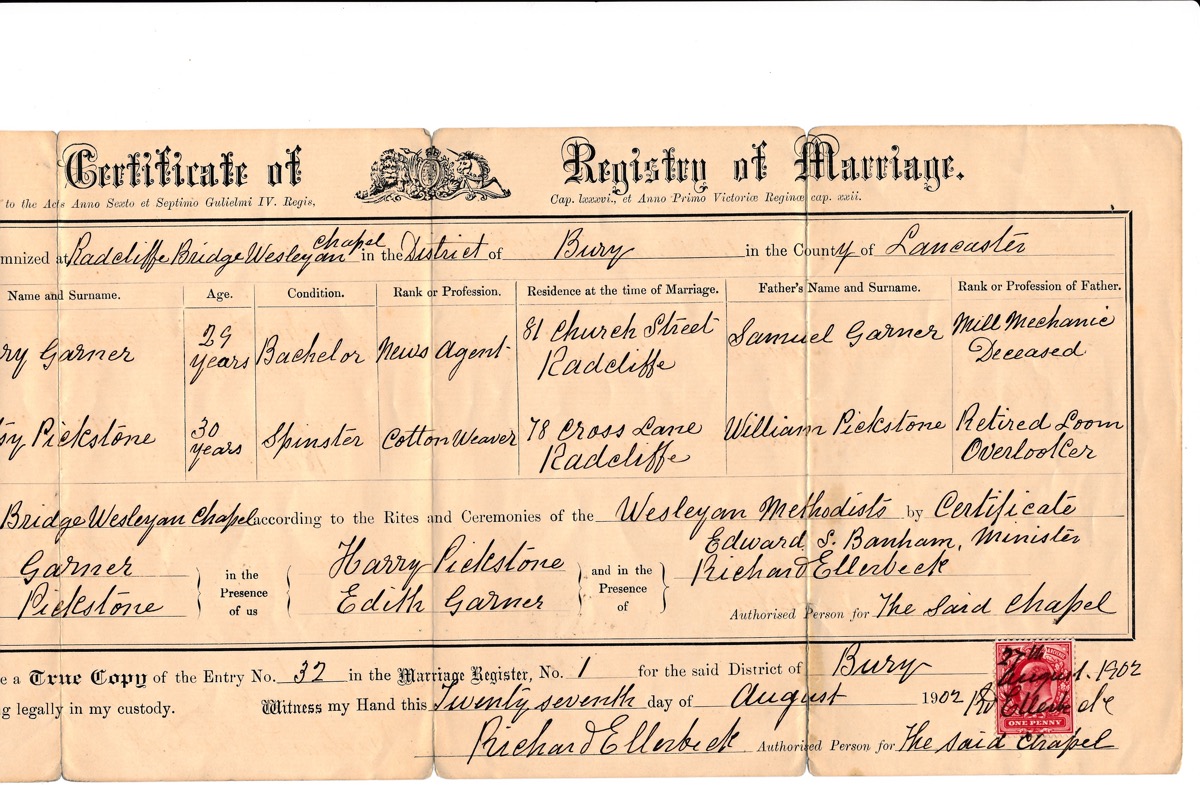 Certificate of Registry of Marriage.
to the Acts Anno Sexto et Septimo Gulielmi IV. Regis, Cap. lxxxvi., et Anno Primo Victoriæ Reginæ cap. xxii.
mnized at Radcliffe Bridge Wesleyan Chapel in the District of Bury in the County of Lancaster
Name and Surname. Age. Condition. Rank or Profession. Residence at the time of Marriage. Father's Name and Surname. Rank or Profession of Father.
ry Garner 29 years Bachelor News Agent 81 Church Street Radcliffe Samuel Garner Mill Mechanic Deceased
sy Pickstone 30 years Spinster Cotton Weaver 78 Cross Lane Radcliffe William Pickstone Retired Loom Overlooker
Bridge Wesleyan Chapel according to the Rites and Ceremonies of the Wesleyan Methodists by Certificate
Edward S. Banham, Minister
Garner in the Presence of us Harry Pickstone and in the Presence of Richard Ellerbeck
Pickstone Edith Garner Authorised Person for The Said Chapel
e a True Copy of the Entry No. 32 in the Marriage Register, No. 1 for the said District of Bury
g legally in my custody. Witness my Hand this Twenty seventh day of August 1902
Richard Ellerbeck Authorised Person for The said Chapel
27th August. 1902
Rd Ellerbeck
ONE PENNY